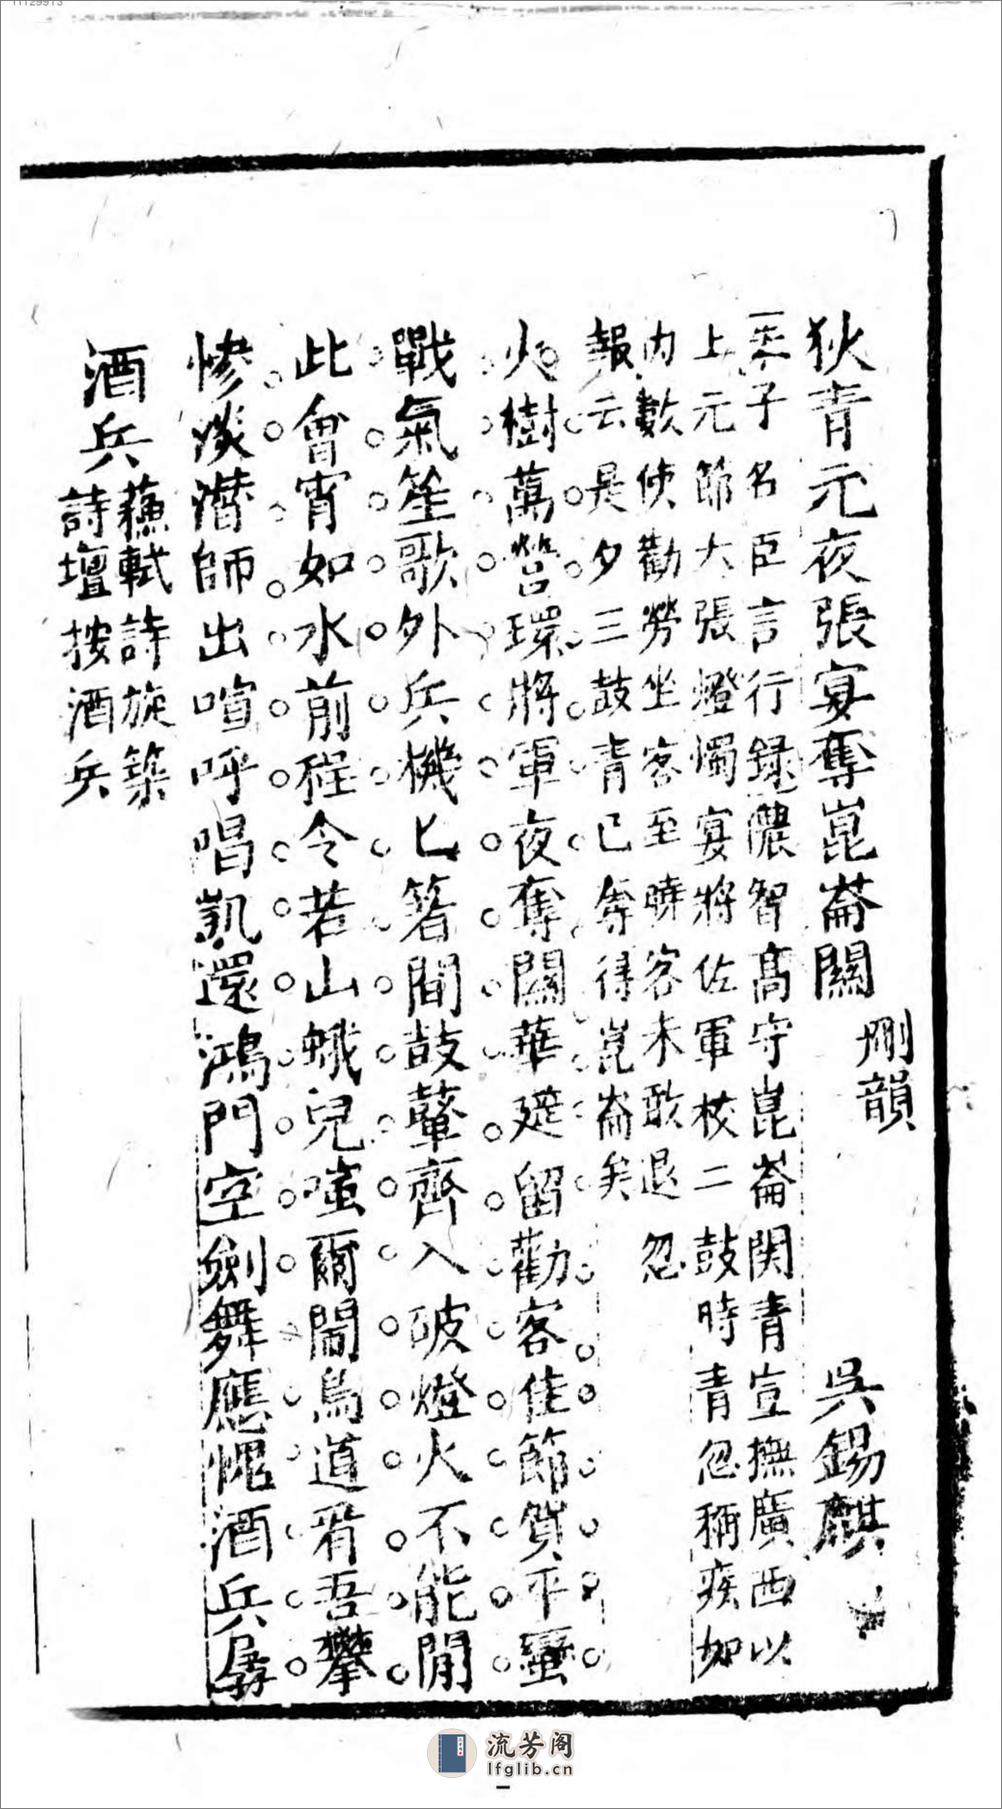 狄青元夜張宴奪崑崙關
刪韻
吳錫麒
王子名臣言行録儂智高守崑崙関青宣撫廣西以
上元節大張燈燭宴將佐軍校二鼓時青忽稱疾如
内數使勸勞坐客至曉客未敢退忽
報云是夕三鼓青已奪得崑崙矣
火樹萬營環將軍夜奪關華筵留勸客佳節賀平蠻
戰氣笙歌外兵機匕箸間鼓鼙齊入破燈火不能閒
此會宵如水前程令若山蛾兒嗤爾鬧鳥道看吾攀
慘淡潛師出喧呼唱凱還鴻門空劍舞應愧酒兵孱
酒兵
蘇軾詩旋築
詩壇按酒兵
11129913
流芳阁
lfglib.cn